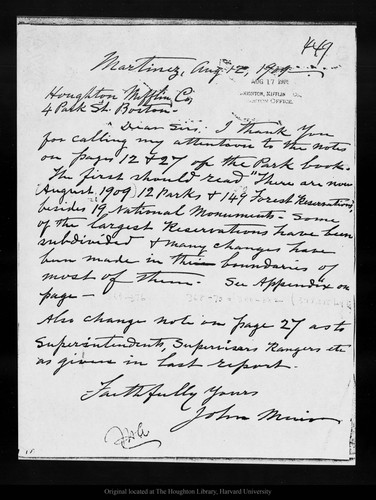 449
Martinez, Aug 12, 1909
AUG 17 1909
HOUGHTON, MIFFLIN CO.
BOSTON OFFICE.
Houghton Mifflin Co,
4 Park St. Boston
Dear Sirs: I thank you
for calling my attention to the notes
on pages 12 & 27 of the Park book.
The first should read "There are now
(August 1909) 12 Parks & 149 Forest Reservations,
besides 19 National Monuments. Some
of the largest Reservations have been
subdivided & many changes have
been made in the boundaries of
most of them. See Appendix on
page —
Also change note on page 27 as to
Superintendents, Supervisors Rangers etc
as given in last report.
Faithfully Yours
John Muir
Original located at The Houghton Library, Harvard University